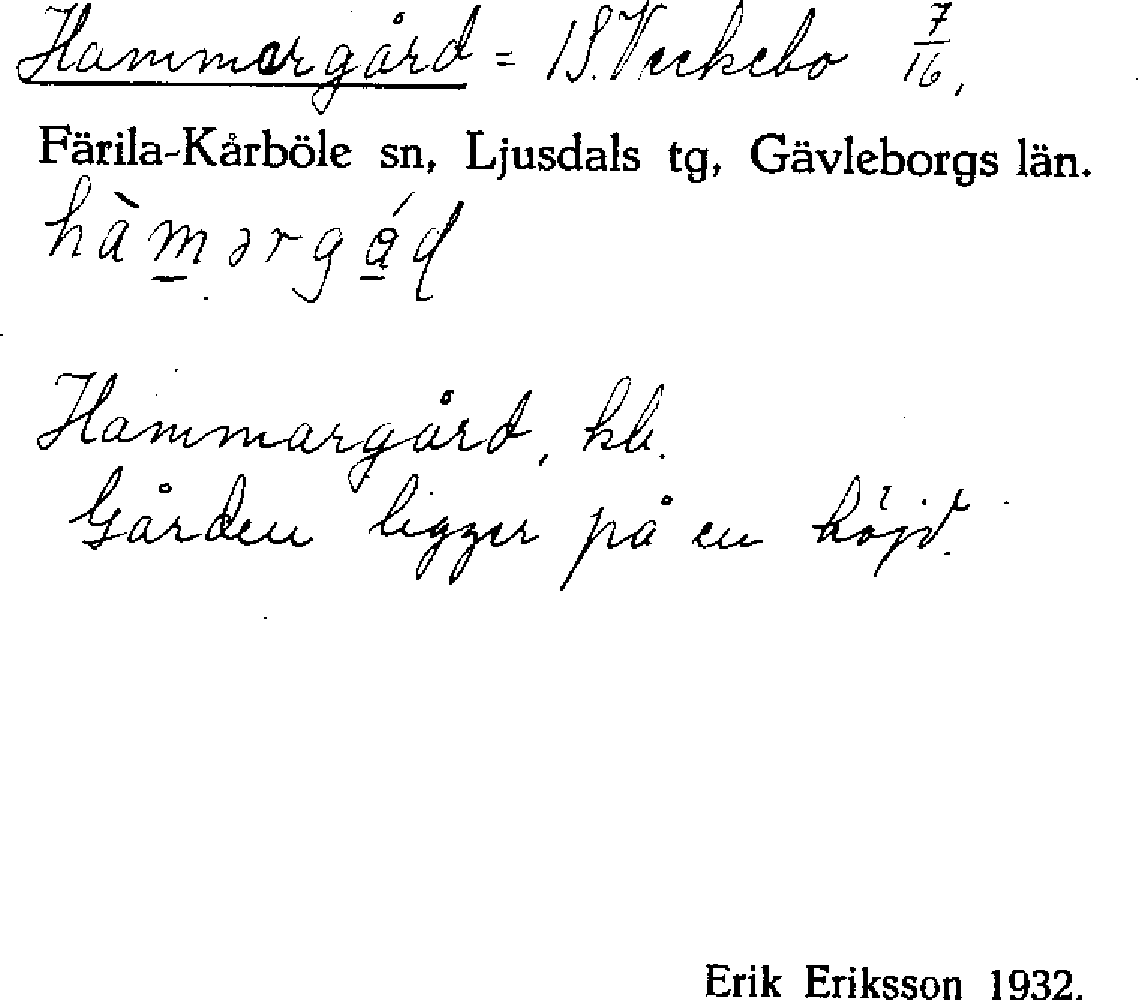 Hammargård = 1 S. Veckebo 7/16,
Färila-Kårböle sn, Ljusdals tg, Gävleborgs län.
hàm̲ərgǻ̲d
Hammargård, hb.
Gården ligger på en höjd.
Erik Eriksson 1932.